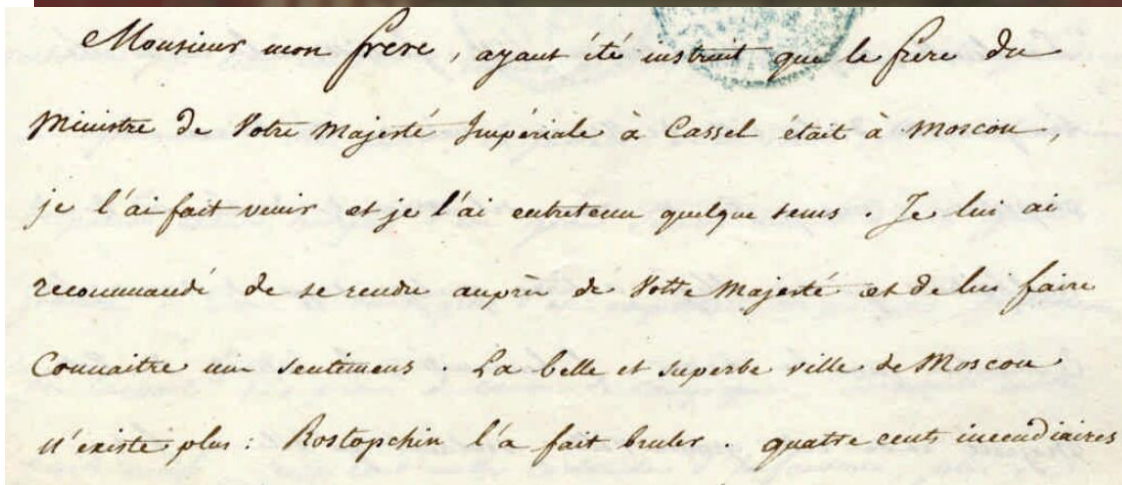 Monsieur mon frere, ayant été instruit que le frère du
Ministre de Votre Majesté Impériale à Cassel était à Moscou,
je l'ai fait venir et je l'ai entretenu quelque tems. Je lui ai
recommandé de se rendre auprès de Votre Majesté et de lui faire
Connaitre mes sentimens. La belle et superbe ville de Moscou
n'existe plus: Rostopchin l'a fait bruler. quatre cents incendiaires